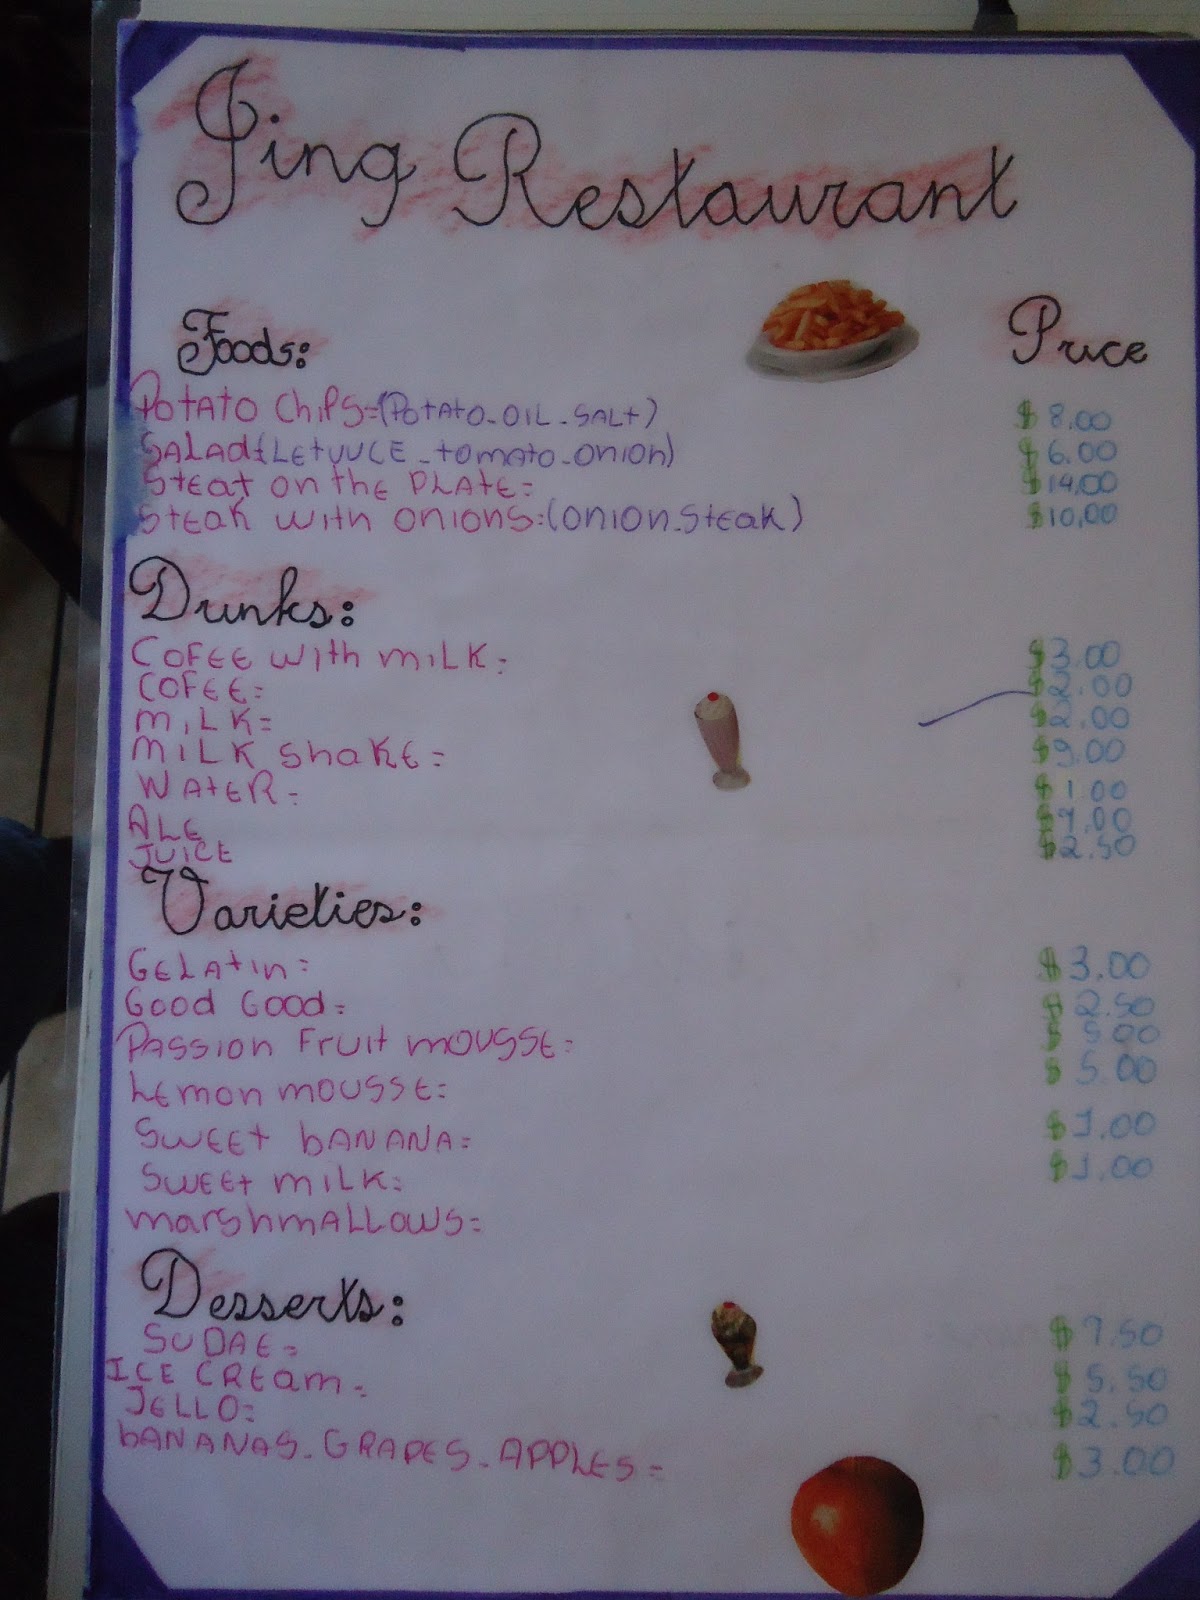 Jing Restaurant
Foods: Price
Potato Chips=(Potato-oil-salt) $8.00
Salad:(Letuuce-tomato-onion) $6.00
Steat on the plate= $14,00
Steak with onions:(onion-steak) $10,00
Drinks:
Cofee with milk= $3.00
Cofee= $2.00
Milk= $2.00
Milk shake= $9.00
Water= $1.00
Ale $7.00
Juice $2.50
Varieties:
Gelatin= $3.00
Good Good= $2.50
Passion Fruit mousse= $5.00
Lemon mousse= $5.00
Sweet banana= $1.00
Sweet milk= $1.00
marshmallows=
Desserts:
Sudae= $7.50
Ice cream= $5.50
Jello= $2.50
bananas-grapes-apples= $3.00